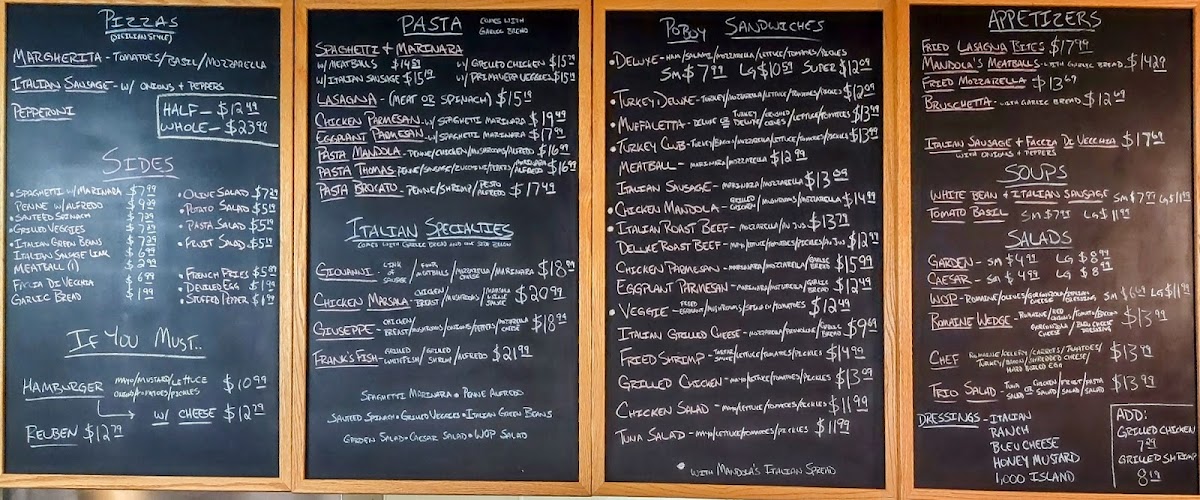 PIZZAS
(SICILIAN STYLE)
MARGHERITA - TOMATOES/BASIL/MOZZARELLA
ITALIAN SAUSAGE - W/ ONIONS + PEPPERS
PEPPERONI
HALF - $12.49
WHOLE - $23.99
SIDES
• SPAGHETTI W/ MARINARA $7.99
PENNE W/ ALFREDO $9.29
• SAUTEED SPINACH $7.29
• GRILLED VEGGIES $7.29
• ITALIAN GREEN BEANS $7.29
ITALIAN SAUSAGE LINK $6.99
MEATBALL (1) $2.99
FACCIA DI VECCHIA $6.99
GARLIC BREAD $1.99
• OLIVE SALAD $7.29
• POTATO SALAD $5.19
• PASTA SALAD $5.19
• FRUIT SALAD $5.19
• FRENCH FRIES $5.89
• DEVILED EGG $1.99
• STUFFED PEPPER $1.99
IF YOU MUST..
HAMBURGER MAYO/MUSTARD/LETTUCE
ONIONS/TOMATOES/PICKLES $10.99
W/ CHEESE $12.29
REUBEN $12.79
PASTA COMES WITH
GARLIC BREAD
SPAGHETTI + MARINARA
W/ MEATBALLS $14.59 W/ GRILLED CHICKEN $15.79
W/ ITALIAN SAUSAGE $15.19 W/ PRIMAVERA VEGGIES $15.19
LASAGNA - (MEAT OR SPINACH) $15.19
CHICKEN PARMESAN W/ SPAGHETTI MARINARA $19.49
EGGPLANT PARMESAN W/ SPAGHETTI MARINARA $17.99
PASTA MANDOLA - PENNE/CHICKEN/MUSHROOMS/ALFREDO $16.99
PASTA THOMAS PENNE/SAUSAGE/ZUCCHINI/PESTO/MARINARA ALFREDO $16.99
PASTA BROCATO - PENNE/SHRIMP/PESTO ALFREDO $17.49
ITALIAN SPECIALTIES
COMES WITH GARLIC BREAD AND ONE SIDE BELOW
GIOVANNI - LINK OF SAUSAGE/FOUR MEATBALLS/MOZZARELLA CHEESE/MARINARA $18.99
CHICKEN MARSALA - CHICKEN BREAST/MUSHROOMS/MARSALA WINE SAUCE $20.99
GIUSEPPE - CHICKEN BREAST/MUSHROOMS/ONIONS/PEPPERS/MOZZARELLA CHEESE $18.99
FRANK'S FISH - GRILLED WHITEFISH/GRILLED SHRIMP/ALFREDO $21.99
SPAGHETTI MARINARA • PENNE ALFREDO
SAUTEED SPINACH • GRILLED VEGGIES • ITALIAN GREEN BEANS
GARDEN SALAD • CAESAR SALAD • WOP SALAD
POBOY SANDWICHES
• DELUXE - HAM/SALAMI/MOZZARELLA/LETTUCE/TOMATOES/PICKLES
SM $7.99 LG $10.59 SUPER $12.09
• TURKEY DELUXE - TURKEY/MOZZARELLA/LETTUCE/TOMATOES/PICKLES $12.09
• MUFFALETTA - DELUXE OR TURKEY DELUXE/CRUSHED OLIVES/LETTUCE/TOMATOES $13.99
• TURKEY CLUB - TURKEY/BACON/MOZZARELLA/LETTUCE/TOMATOES/PICKLES $13.99
MEATBALL - MARINARA/MOZZARELLA $12.99
ITALIAN SAUSAGE - MARINARA/MOZZARELLA $13.09
• CHICKEN MANDOLA - GRILLED CHICKEN/MUSHROOMS/MOZZARELLA $14.99
• ITALIAN ROAST BEEF - MOZZARELLA/AU JUS $13.79
DELUXE ROAST BEEF - MAYO/LETTUCE/TOMATOES/PICKLES/AU JUS $12.99
CHICKEN PARMESAN - MARINARA/MOZZARELLA/GARLIC BREAD $15.99
EGGPLANT PARMESAN - MARINARA/MOZZARELLA/GARLIC BREAD $12.49
• VEGGIE - FRIED EGGPLANT/MUSHROOMS/SPINACH/TOMATOES $12.49
ITALIAN GRILLED CHEESE - MOZZARELLA/PROVOLONE/GARLIC BREAD $9.69
FRIED SHRIMP - TARTAR SAUCE/LETTUCE/TOMATOES/PICKLES $14.99
GRILLED CHICKEN - MAYO/LETTUCE/TOMATOES/PICKLES $13.09
CHICKEN SALAD - MAYO/LETTUCE/TOMATOES/PICKLES $11.99
TUNA SALAD - MAYO/LETTUCE/TOMATOES/PICKLES $11.99
• WITH MANDOLA'S ITALIAN SPREAD
APPETIZERS
FRIED LASAGNA BITES $17.99
MANDOLA'S MEATBALLS - WITH GARLIC BREAD $14.29
FRIED MOZZARELLA $13.69
BRUSCHETTA - WITH GARLIC BREAD $12.69
ITALIAN SAUSAGE + FACCIA DE VECCHIA $17.69
WITH ONIONS + PEPPERS
SOUPS
WHITE BEAN + ITALIAN SAUSAGE SM $7.99 LG $11.99
TOMATO BASIL SM $7.99 LG $11.99
SALADS
GARDEN - SM $4.99 LG $8.99
CAESAR - SM $4.99 LG $8.99
WOP - ROMAINE/OLIVES/GORGONZOLA CHEESE/ITALIAN DRESSING SM $6.69 LG $11.99
ROMAINE WEDGE - ROMAINE/RED ONIONS/TOMATO/BACON
GORGONZOLA CHEESE/BLEU CHEESE DRESSING $13.99
CHEF ROMAINE/CELERY/CARROTS/TOMATOES/
TURKEY/BACON/SHREDDED CHEESE/
HARD BOILED EGG $13.99
TRIO SALAD - TUNA SALAD OR CHICKEN SALAD/FRUIT SALAD/PASTA SALAD $13.99
DRESSINGS - ITALIAN
RANCH
BLEU CHEESE
HONEY MUSTARD
1,000 ISLAND
ADD:
GRILLED CHICKEN
7.09
GRILLED SHRIMP
8.19